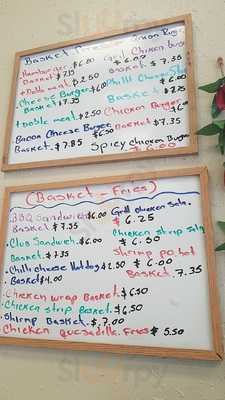 Basket Fries
Hamburger $6.00
Basket $7.25
+Doble meat $2.50
Cheese Burger $6.00
Basket $7.35
+Doble meat $2.50
Bacon Cheese Burger $6.50
Basket. $7.85
Grill Chicken burger
$6.00
Basket. $7.35
Philli Cheese
$6.00
Basket $
Chicken Burger
$6.00
Basket $7.35
Spicy chicken Burger
$6.00
(Basket - Fries)
BBQ Sandwich $6.00
Basket $7.35
.Club Sandwich. $6.00
Basket. $7.35
.Chilli cheese Hotdog $2.50
.Basket $4.00
.Chicken wrap Basket. $6.50
.Chicken strip Basket $6.50
.Shrimp Basket. $7.00
Chicken Quesadilla. Fries $5.50
Grill chicken Sala.
$6.25
Chicken strip Sala
$6.50
Shrimp po, bot
$6.00
Basket. 7.35